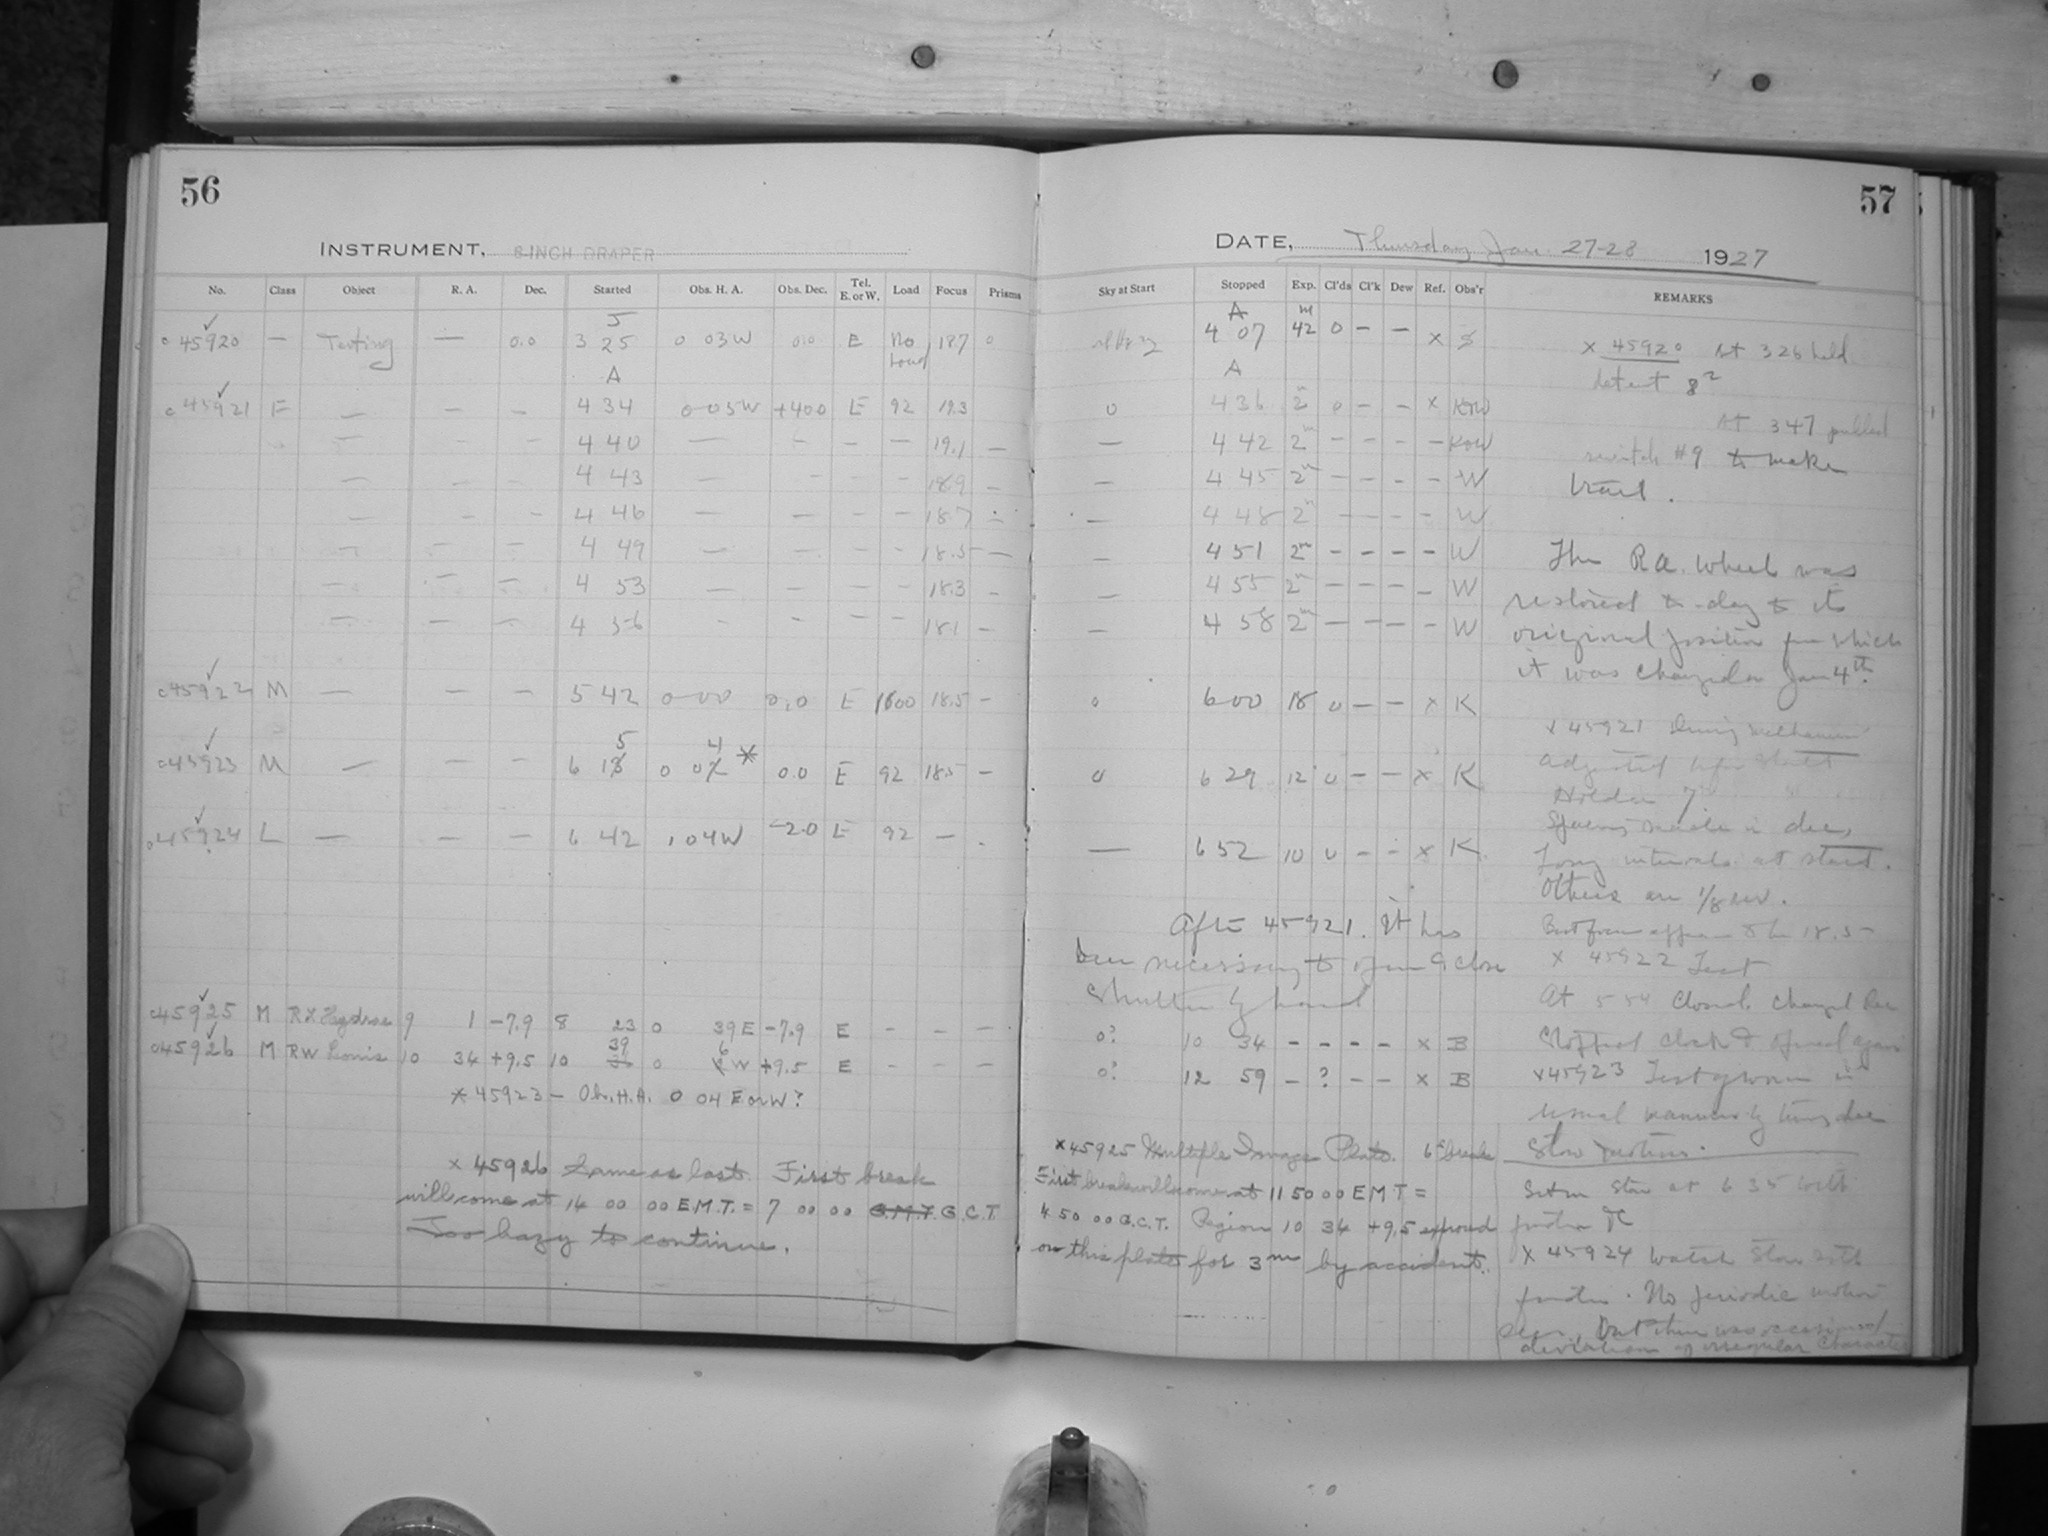 56
INSTRUMENT, 8-INCH DRAPER
No. Class Object R. A. Dec. Started Obs. H. A. Obs. Dec. Tel. E. or W. Load Focus Prisms
J
c 45920 — Testing — 0.0 3 25 0 03W 0.0 E No Load 18.7 0
A
c 45921 F — — — 4 34 0 05W +40.0 E 92 19.3
— — — 4 40 — — — — 19.1 —
— — — 4 43 — — — — 18.9 —
— — — 4 46 — — — — 18.7 —
— — — 4 49 — — — — 18.5 —
— — — 4 53 — — — — 18.3 —
— — — 4 56 — — — — 18.1 —
c 45922 M — — — 5 42 0 00 0.0 E 1600 18.5 —
5 4
c 45923 M — — — 6 18 0 02 * 0.0 E 92 18.5 —
c 45924 L — — — 6 42 1 04W -2.0 E 92 —
c 45925 M RX Hydrae 9 1 -7.9 8 23 0 39E -7.9 E — — —
39 6
c 45926 M RW Leonis 10 34 +9.5 10 0 W +9.5 E — — —
* 45923 — Obs. H.A. 0 04 E or W?
x 45926 Same as last. First break
will come at 14 00 00 E.M.T. = 7 00 00 G.M.T. G.C.T.
Too hazy to continue.
57
DATE, Thursday Jan. 27-28 1927
Sky at Start Stopped Exp. Cl'ds Cl'k Dew Ref. Obs'r REMARKS
A m
4 07 42 0 — — x
A
0 4 36 2m 0 — — x KOW
— 4 42 2m — — — — KOW
— 4 45 2m — — — — W
— 4 48 2m — — — — W
— 4 51 2m — — — — W
— 4 55 2m — — — — W
— 4 58 2m — — — — W
0 6 00 18 0 — — x K
0 6 29 12 0 — — x K
— 6 52 10 0 — — x K
After 45921. It has
been necessary to open & close
shutter by hand
0? 10 34 — — — — x B
0? 12 59 — ? — — x B
x 45925 Multiple Image Plate. 6 breaks
First break will come at 11 50 00 E M T =
4 50 00 G.C.T. Region 10 34 +9.5 exposed
on this plate for 3m by accident.
x 45920 At 326 held
detent 8
At 347 pulled
switch #9 to make
trail.
The R.A. Wheel was
restored to-day to its
original position from which
it was changed on Jan 4th.
x 45921 Driving mechanism
adjusted before start
Holder 7
Spacing made in dec.
Long intervals at start.
Others are 1/8 rev.
Best focus appears to be 18.5
x 45922 Test
At 5 54 Closed. Changed Dec
Stopped clock & opened again
x 45923 Test given in
usual manner by using dec
slow motion.
Set on star at 6 35 with
x 45924 Watch star with
No periodic motion
seen, but there was occasional
deviation of irregular character